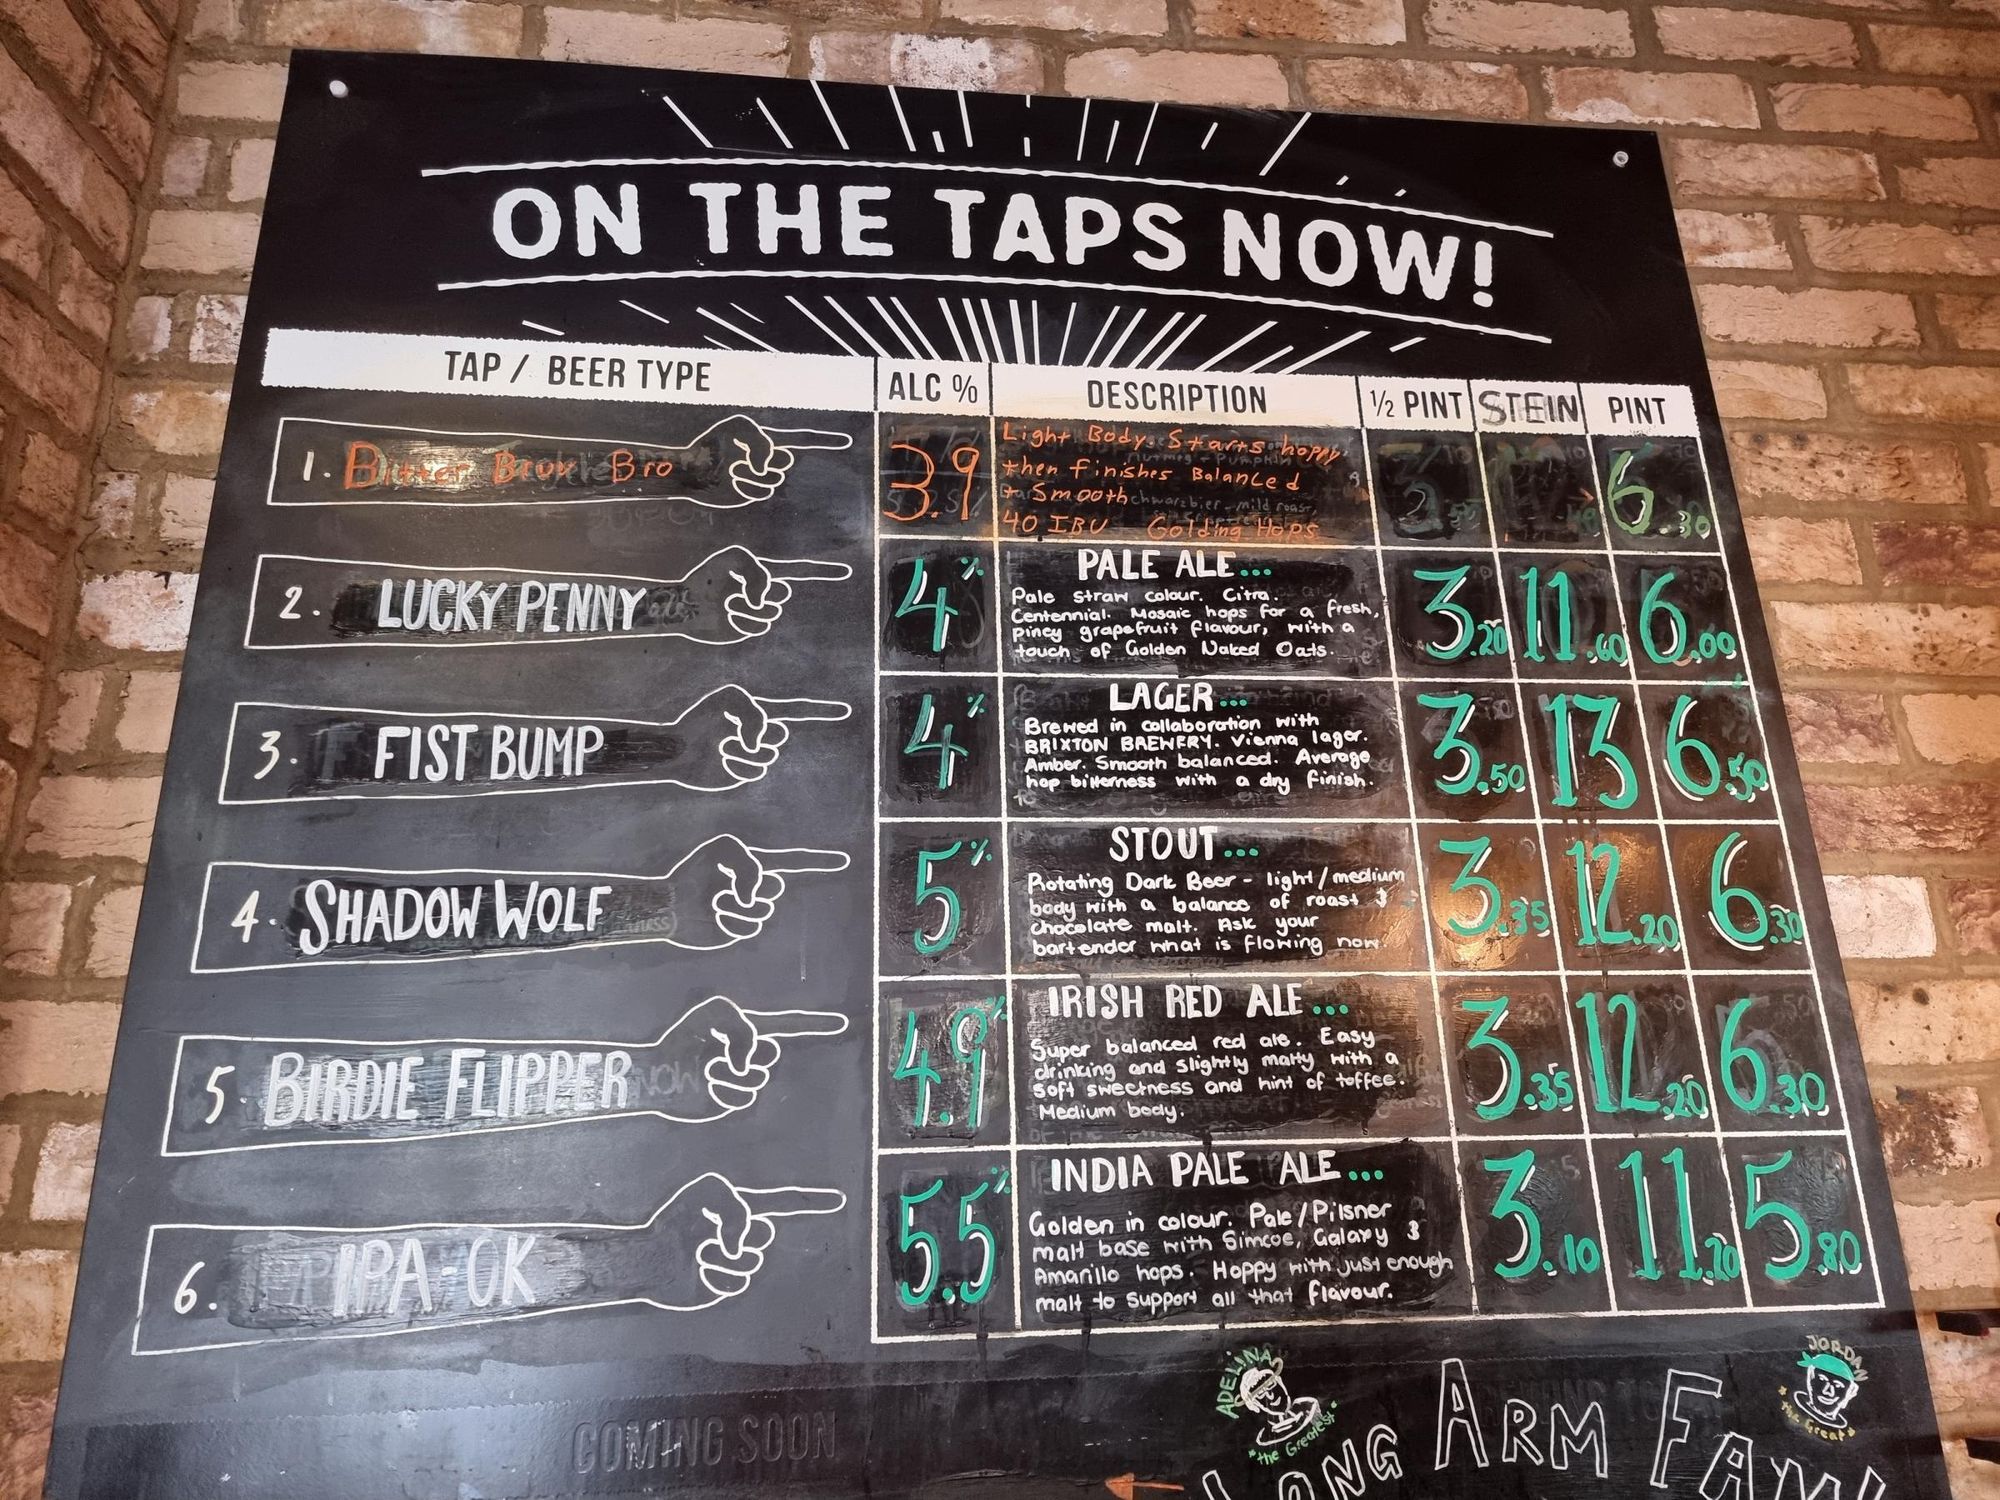 ON THE TAPS NOW!
TAP / BEER TYPE ALC % DESCRIPTION ½ PINT STEIN PINT
1. Bitter Bruv Bro 3.9 6.30
Light Body. Starts hoppy,
then finishes Balanced
+ Smooth
40 IBU Golding Hops
2. LUCKY PENNY 4% 3.20 11.60 6.00
PALE ALE...
Pale straw colour. Citra.
Centennial. Mosaic hops for a fresh,
piney grapefruit flavour, with a
touch of Golden Naked Oats.
3. FIST BUMP 4% 3.50 13 6.50
LAGER...
Brewed in collaboration with
BRIXTON BREWERY. Vienna lager.
Amber. Smooth balanced. Average
hop bitterness with a dry finish.
4. SHADOW WOLF 5% 3.35 12.20 6.30
STOUT...
Rotating Dark Beer - light/medium
body with a balance of roast &
chocolate malt. Ask your
bartender what is flowing now.
5. BIRDIE FLIPPER 4.9% 3.35 12.20 6.30
IRISH RED ALE...
Super balanced red ale. Easy
drinking and slightly malty with a
soft sweetness and hint of toffee.
Medium body.
6. IPA-OK 5.5% 3.10 11.20 5.80
INDIA PALE ALE...
Golden in colour. Pale/Pilsner
malt base with Simcoe, Galaxy &
Amarillo hops. Hoppy with just enough
malt to support all that flavour.
COMING SOON
ADELINA
the Greatest
JORDAN
the Great
LONG ARM FAM